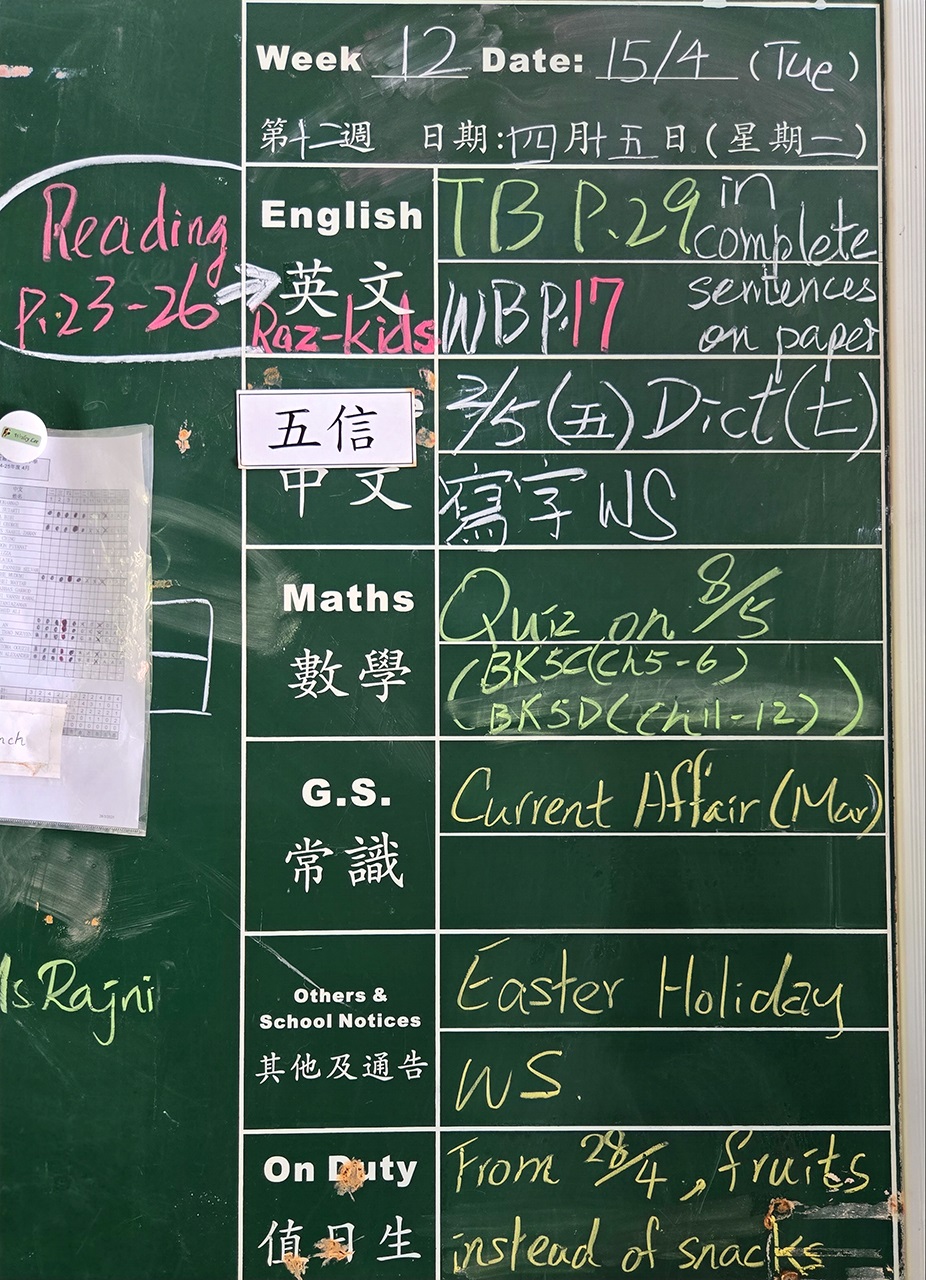 Week 12 Date: 15/4 (Tue)
第十二週 日期:四月十五日(星期二)
Reading
P.23-26
English
英文
Raz-kids
TB P.29 in complete sentences on paper
WB P.17
五信
中文
2/5 (五) Dict(七)
寫字 WS
Maths
數學
Quiz on 8/5
(BK5C(Ch5-6)
BK5D(Ch11-12))
G.S.
常識
Current Affair (Mar)
Others &
School Notices
其他及通告
Easter Holiday
WS.
Ms Rajni
On Duty
值日生
From 28/4, fruits
instead of snacks